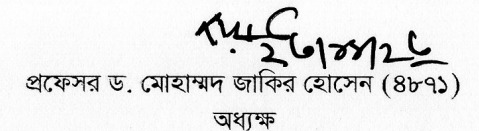 প্রফেসর ড. মোহাম্মদ জাকির হোসেন (৪৮৭১)
অধ্যক্ষ